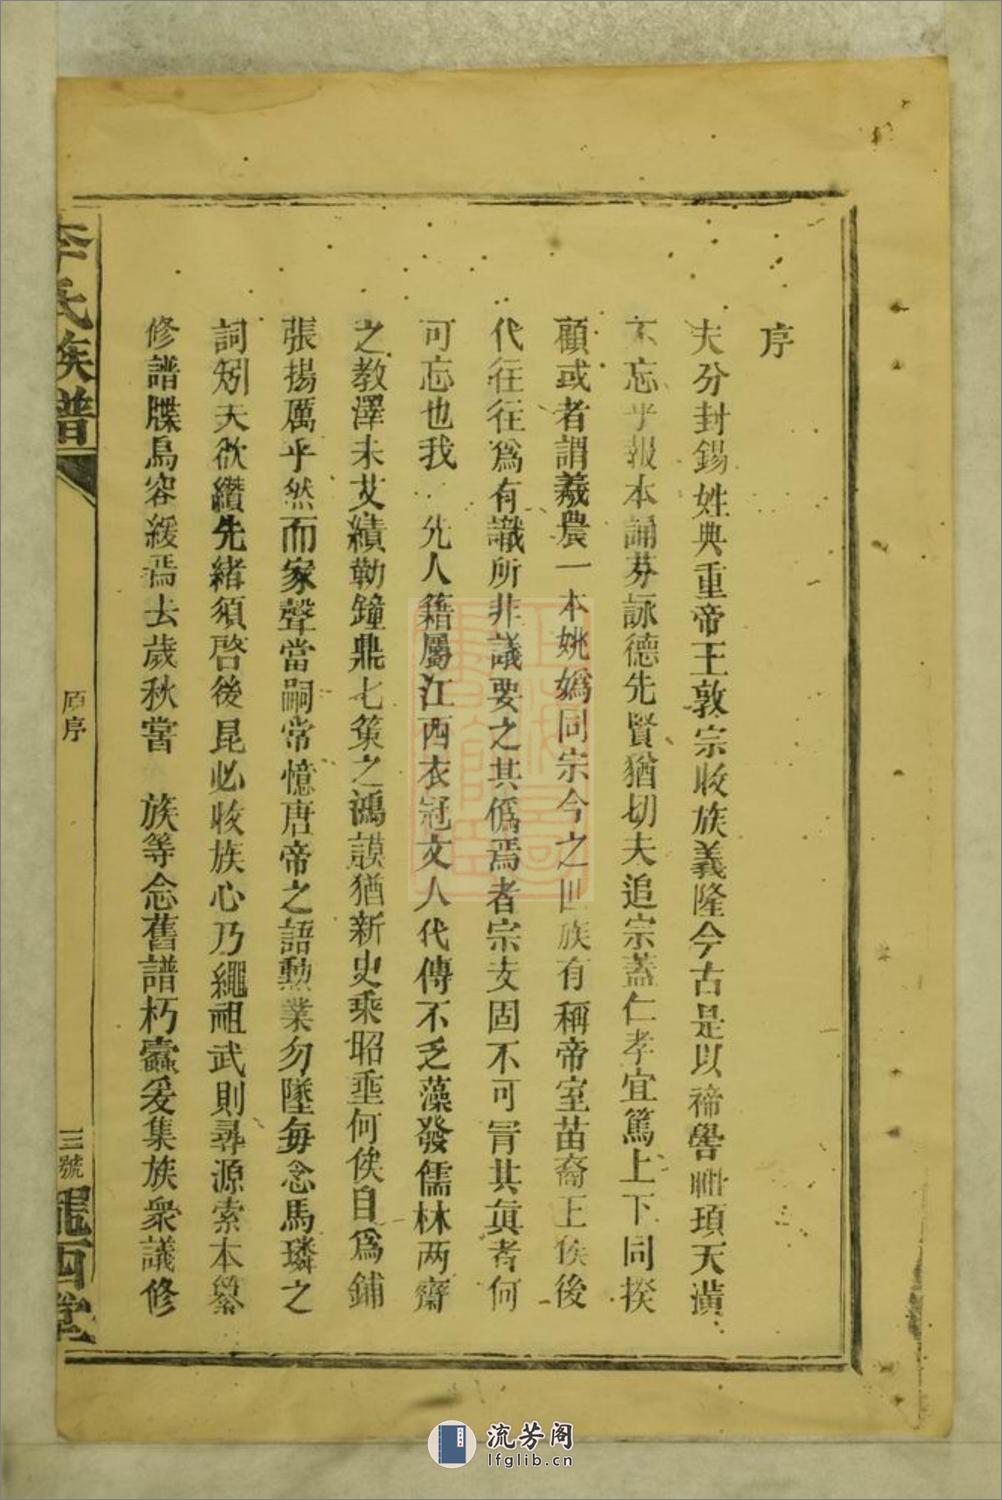 序
夫分封錫姓典重帝王敦宗收族義隆今古是以禘嚳 頊天潢
不忘乎報本誦芬詠德先賢猶切夫追宗蓋仁孝宜篤上下同揆
顧或者謂羲農一本姚媯同宗今之世族有稱帝室苗裔王侯後
代往往爲有識所非議要之其僞焉者宗支固不可冒其眞者何
可忘也我 先人籍屬江西衣冠文人代傳不乏藻發儒林两齋
之教澤未艾績勒鐘鼎七𥮅之鴻謨猶新史乘昭垂何俟自爲鋪
張揚厲乎然而家聲當嗣常憶唐帝之語勳業勿墜每念馬璘之
詞矧夫欲纘先緒須啓後昆必收族心乃繩祖武則尋源索本纂
修譜牒烏容緩焉去歲秋嘗 族等念舊譜朽蠹爰集族衆議修
李氏族譜
原序
三號
隴西堂
流芳阁
lfglib.cn